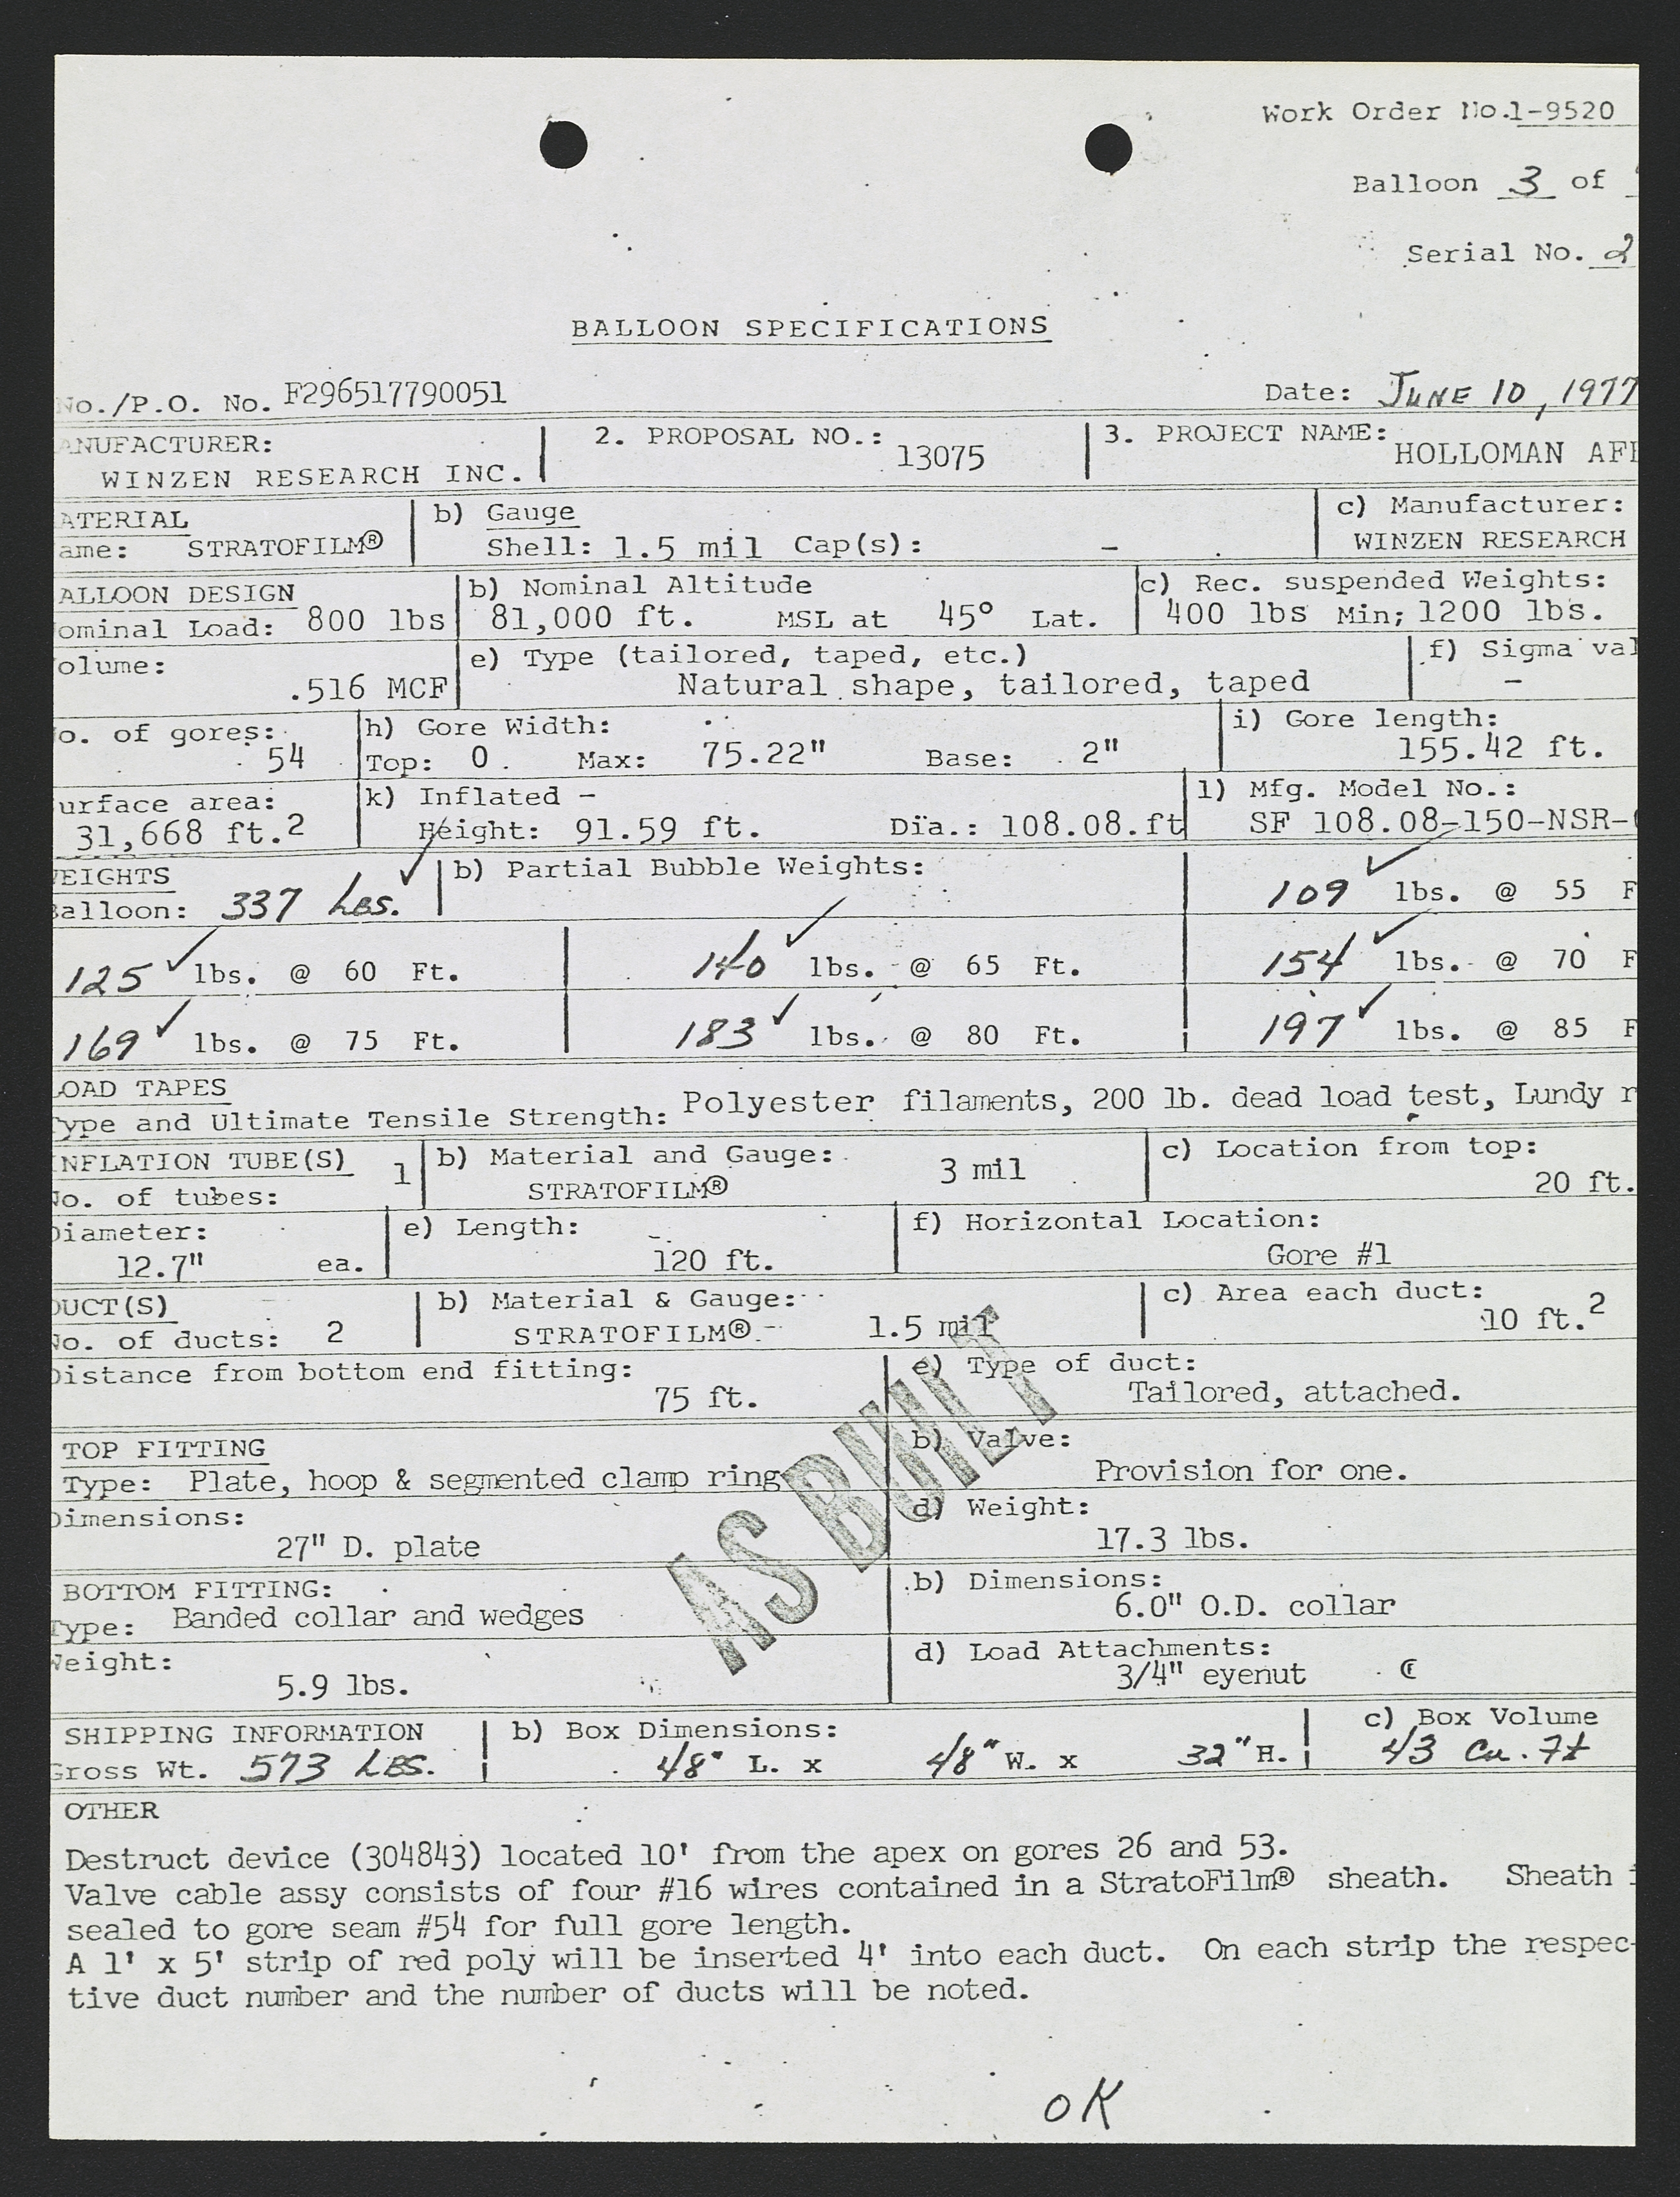 Work Order No.1-9520
Balloon 3 of
Serial No. 2
BALLOON SPECIFICATIONS
No./P.O. No. F296517790051 Date: JUNE 10, 1977
ANUFACTURER: 2. PROPOSAL NO.: 13075 3. PROJECT NAME:
WINZEN RESEARCH INC. HOLLOMAN AF
ATERIAL b) Gauge c) Manufacturer:
ame: STRATOFILM® Shell: 1.5 mil Cap(s): - WINZEN RESEARCH
ALLOON DESIGN b) Nominal Altitude c) Rec. suspended Weights:
ominal Load: 800 lbs 81,000 ft. MSL at 45° Lat. 400 lbs Min; 1200 lbs.
olume: e) Type (tailored, taped, etc.) f) Sigma val
.516 MCF Natural shape, tailored, taped -
o. of gores: h) Gore Width: i) Gore length:
54 Top: 0. Max: 75.22" Base: 2" 155.42 ft.
urface area: k) Inflated - l) Mfg. Model No.:
31,668 ft.2 Height: 91.59 ft. Dia.: 108.08.ft SF 108.08-150-NSR-
WEIGHTS b) Partial Bubble Weights:
Balloon: 337 Lbs. ✓ 109 ✓ lbs. @ 55 F
125 ✓ lbs. @ 60 Ft. 140 ✓ lbs. @ 65 Ft. 154 ✓ lbs. @ 70 F
169 ✓ lbs. @ 75 Ft. 183 ✓ lbs. @ 80 Ft. 197 ✓ lbs. @ 85 F
LOAD TAPES
Type and Ultimate Tensile Strength: Polyester filaments, 200 lb. dead load test, Lundy r
INFLATION TUBE(S) b) Material and Gauge: c) Location from top:
No. of tubes: 1 STRATOFILM® 3 mil 20 ft.
Diameter: e) Length: f) Horizontal Location:
12.7" ea. 120 ft. Gore #1
DUCT(S) b) Material & Gauge: c) Area each duct:
No. of ducts: 2 STRATOFILM® 1.5 mil 10 ft.2
Distance from bottom end fitting: e) Type of duct:
75 ft. Tailored, attached.
TOP FITTING b) Valve:
Type: Plate, hoop & segmented clamp ring Provision for one.
Dimensions: d) Weight:
27" D. plate 17.3 lbs.
AS BUILT
BOTTOM FITTING: b) Dimensions:
Type: Banded collar and wedges 6.0" O.D. collar
Weight: d) Load Attachments:
5.9 lbs. 3/4" eyenut
SHIPPING INFORMATION b) Box Dimensions: c) Box Volume
Gross Wt. 573 LBS. 48" L. x 48" W. x 32" H. 43 Cu. Ft
OTHER
Destruct device (304843) located 10' from the apex on gores 26 and 53.
Valve cable assy consists of four #16 wires contained in a StratoFilm® sheath. Sheath i
sealed to gore seam #54 for full gore length.
A 1' x 5' strip of red poly will be inserted 4' into each duct. On each strip the respec-
tive duct number and the number of ducts will be noted.
OK